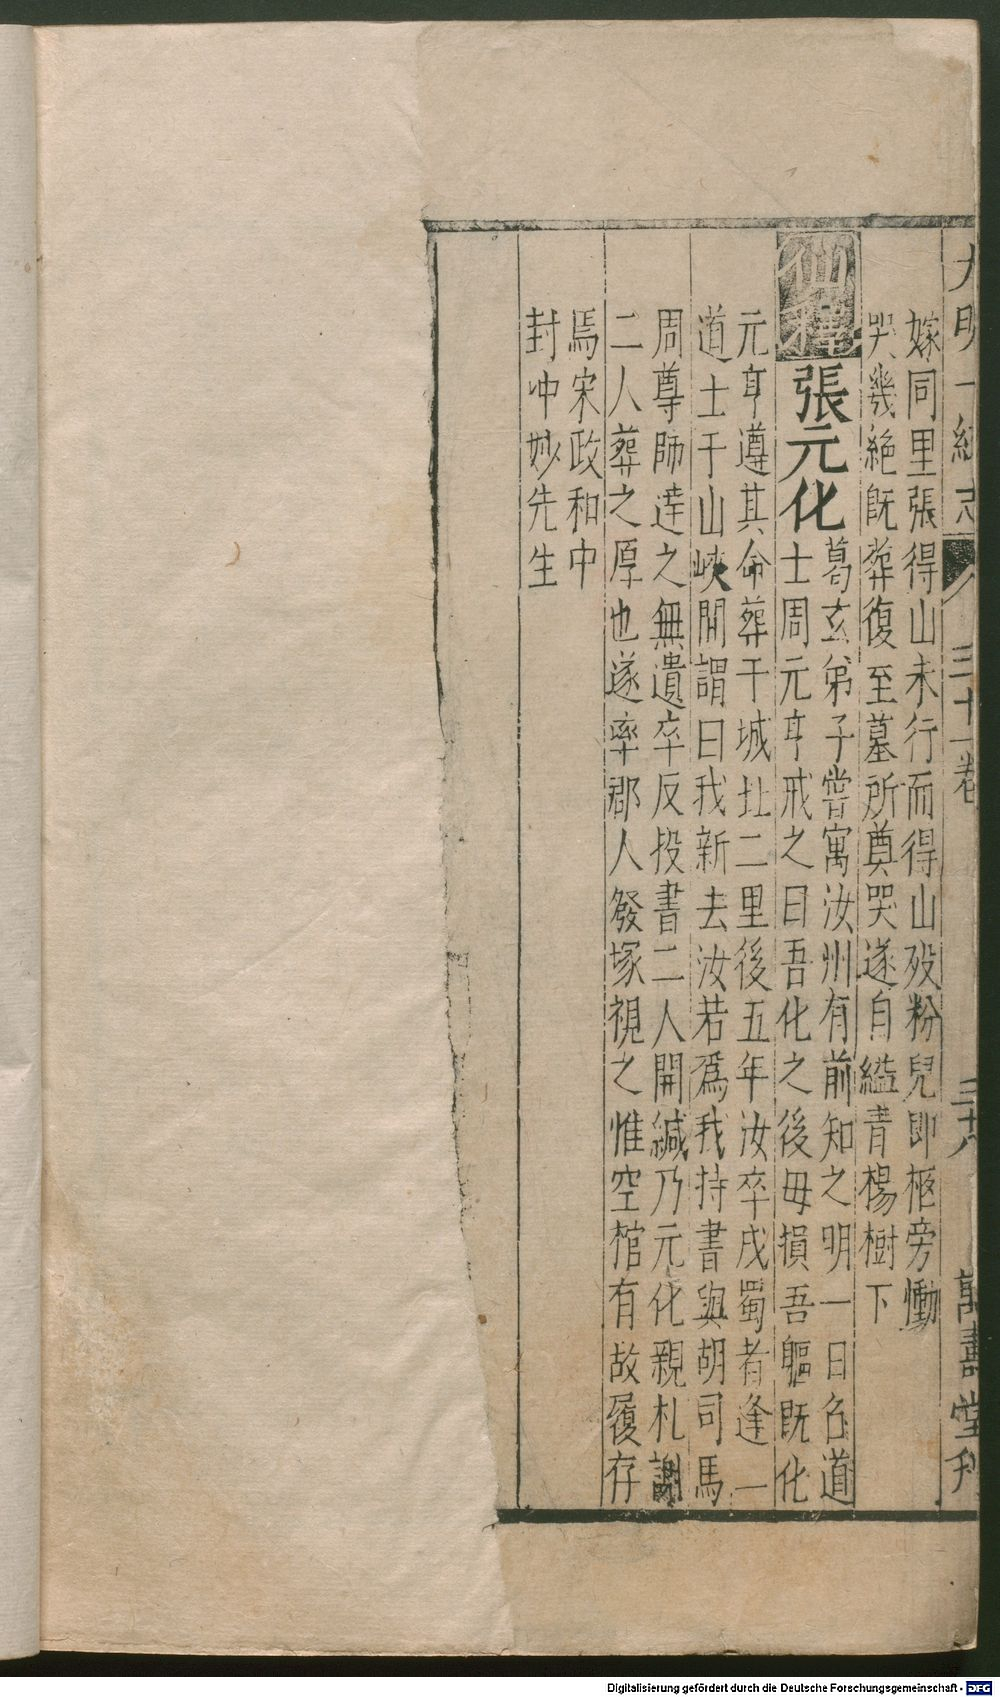 大明一統志 三十一卷 三十八 萬壽堂刊
嫁同里張得山未行而得山歿粉兒即柩旁慟
哭幾絶旣葬復至墓所奠哭遂自縊青楊樹下
仙釋 張元化
葛玄弟子嘗寓汝州有前知之明一日召道
士周元亨戒之曰吾化之後毋損吾軀旣化
元亨遵其命葬于城北二里後五年汝卒戍蜀者逢一
道士于山峽間謂曰我新去汝若爲我持書與胡司馬
周尊師達之無遺卒反投書二人開緘乃元化親札謝
二人葬之厚也遂率郡人發塚視之惟空棺有故履存
焉宋政和中
封冲妙先生
Digitalisierung gefördert durch die Deutsche Forschungsgemeinschaft - DFG